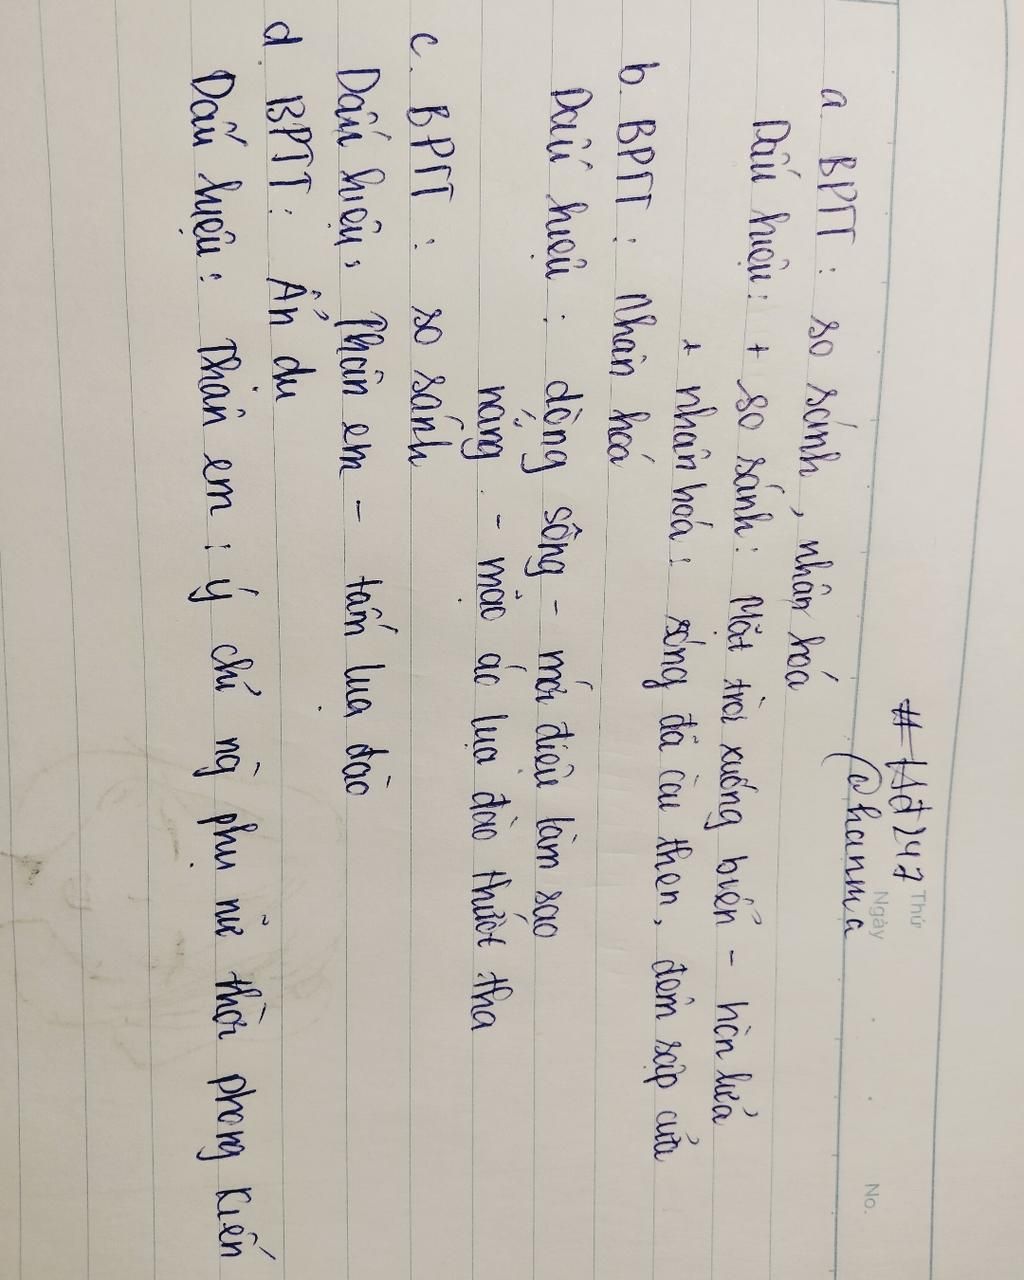 Thứ
Ngày
No.
#Hđ247
@hanma
a. BPTT : so sánh, nhân hoá
Dấu hiệu: + so sánh: Mặt trời xuống biển - hòn lửa
+ nhân hoá: sóng đã cài then, đêm sập cửa
b. BPTT : nhân hoá
Dấu hiệu : dòng sông - mới điệu làm sao
nắng - mặc áo lụa đào thướt tha
c. BPTT : so sánh
Dấu hiệu: Thân em - tấm lụa đào
d. BPTT: Ẩn dụ
Dấu hiệu: Thân em : ý chỉ ng phụ nữ thời phong kiến